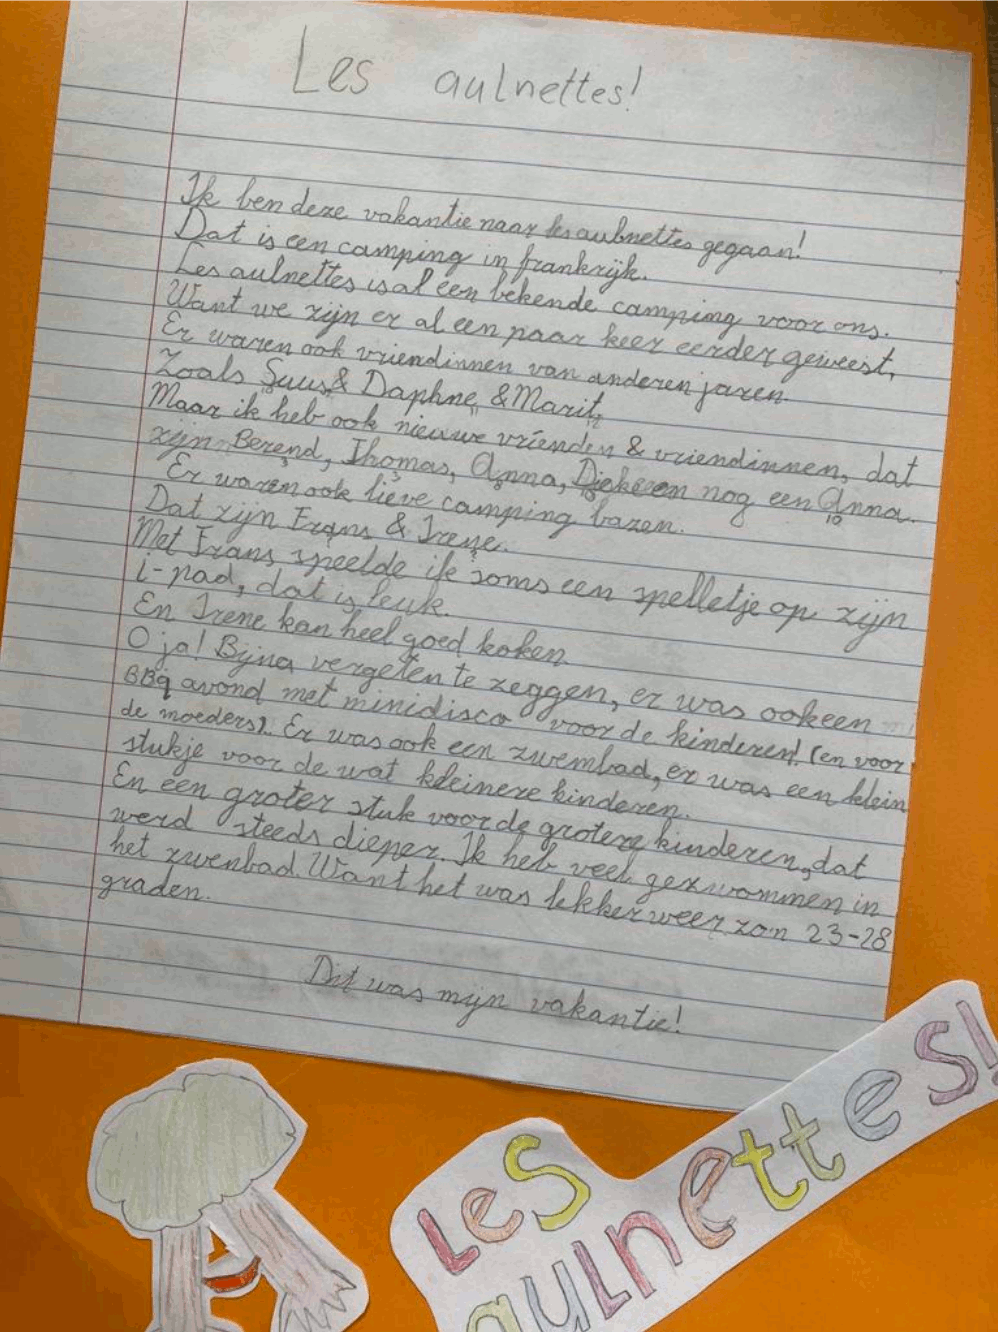 Les aulnettes!
Ik ben deze vakantie naar les aulnettes gegaan!
Dat is een camping in frankrijk.
Les aulnettes is al een bekende camping voor ons.
Want we zijn er al een paar keer eerder geweest,
Er waren ook vriendinnen van anderen jaren.
Zoals Suus & Daphne & Marit,
Maar ik heb ook nieuwe vrienden & vriendinnen, dat
zijn Berend, Thomas, Anna, Diekeen nog een Anna.
Er waren ook lieve camping bazen.
Dat zijn Frans & Irene.
Met Frans speelde ik soms een spelletje op zijn
i-pad, dat is leuk.
En Irene kan heel goed koken.
O ja! Bijna vergeten te zeggen, er was ook een
BBq avond met minidisco voor de kinderen! (en voor
de moeders). Er was ook een zwembad, er was een klein
stukje voor de wat kleinere kinderen.
En een groter stuk voor de grotere kinderen, dat
werd steeds dieper. Ik heb veel gezwommen in
het zwenbad. Want het was lekker weer zo'n 23-28
graden.
Dit was mijn vakantie!
Les
aulnettes!